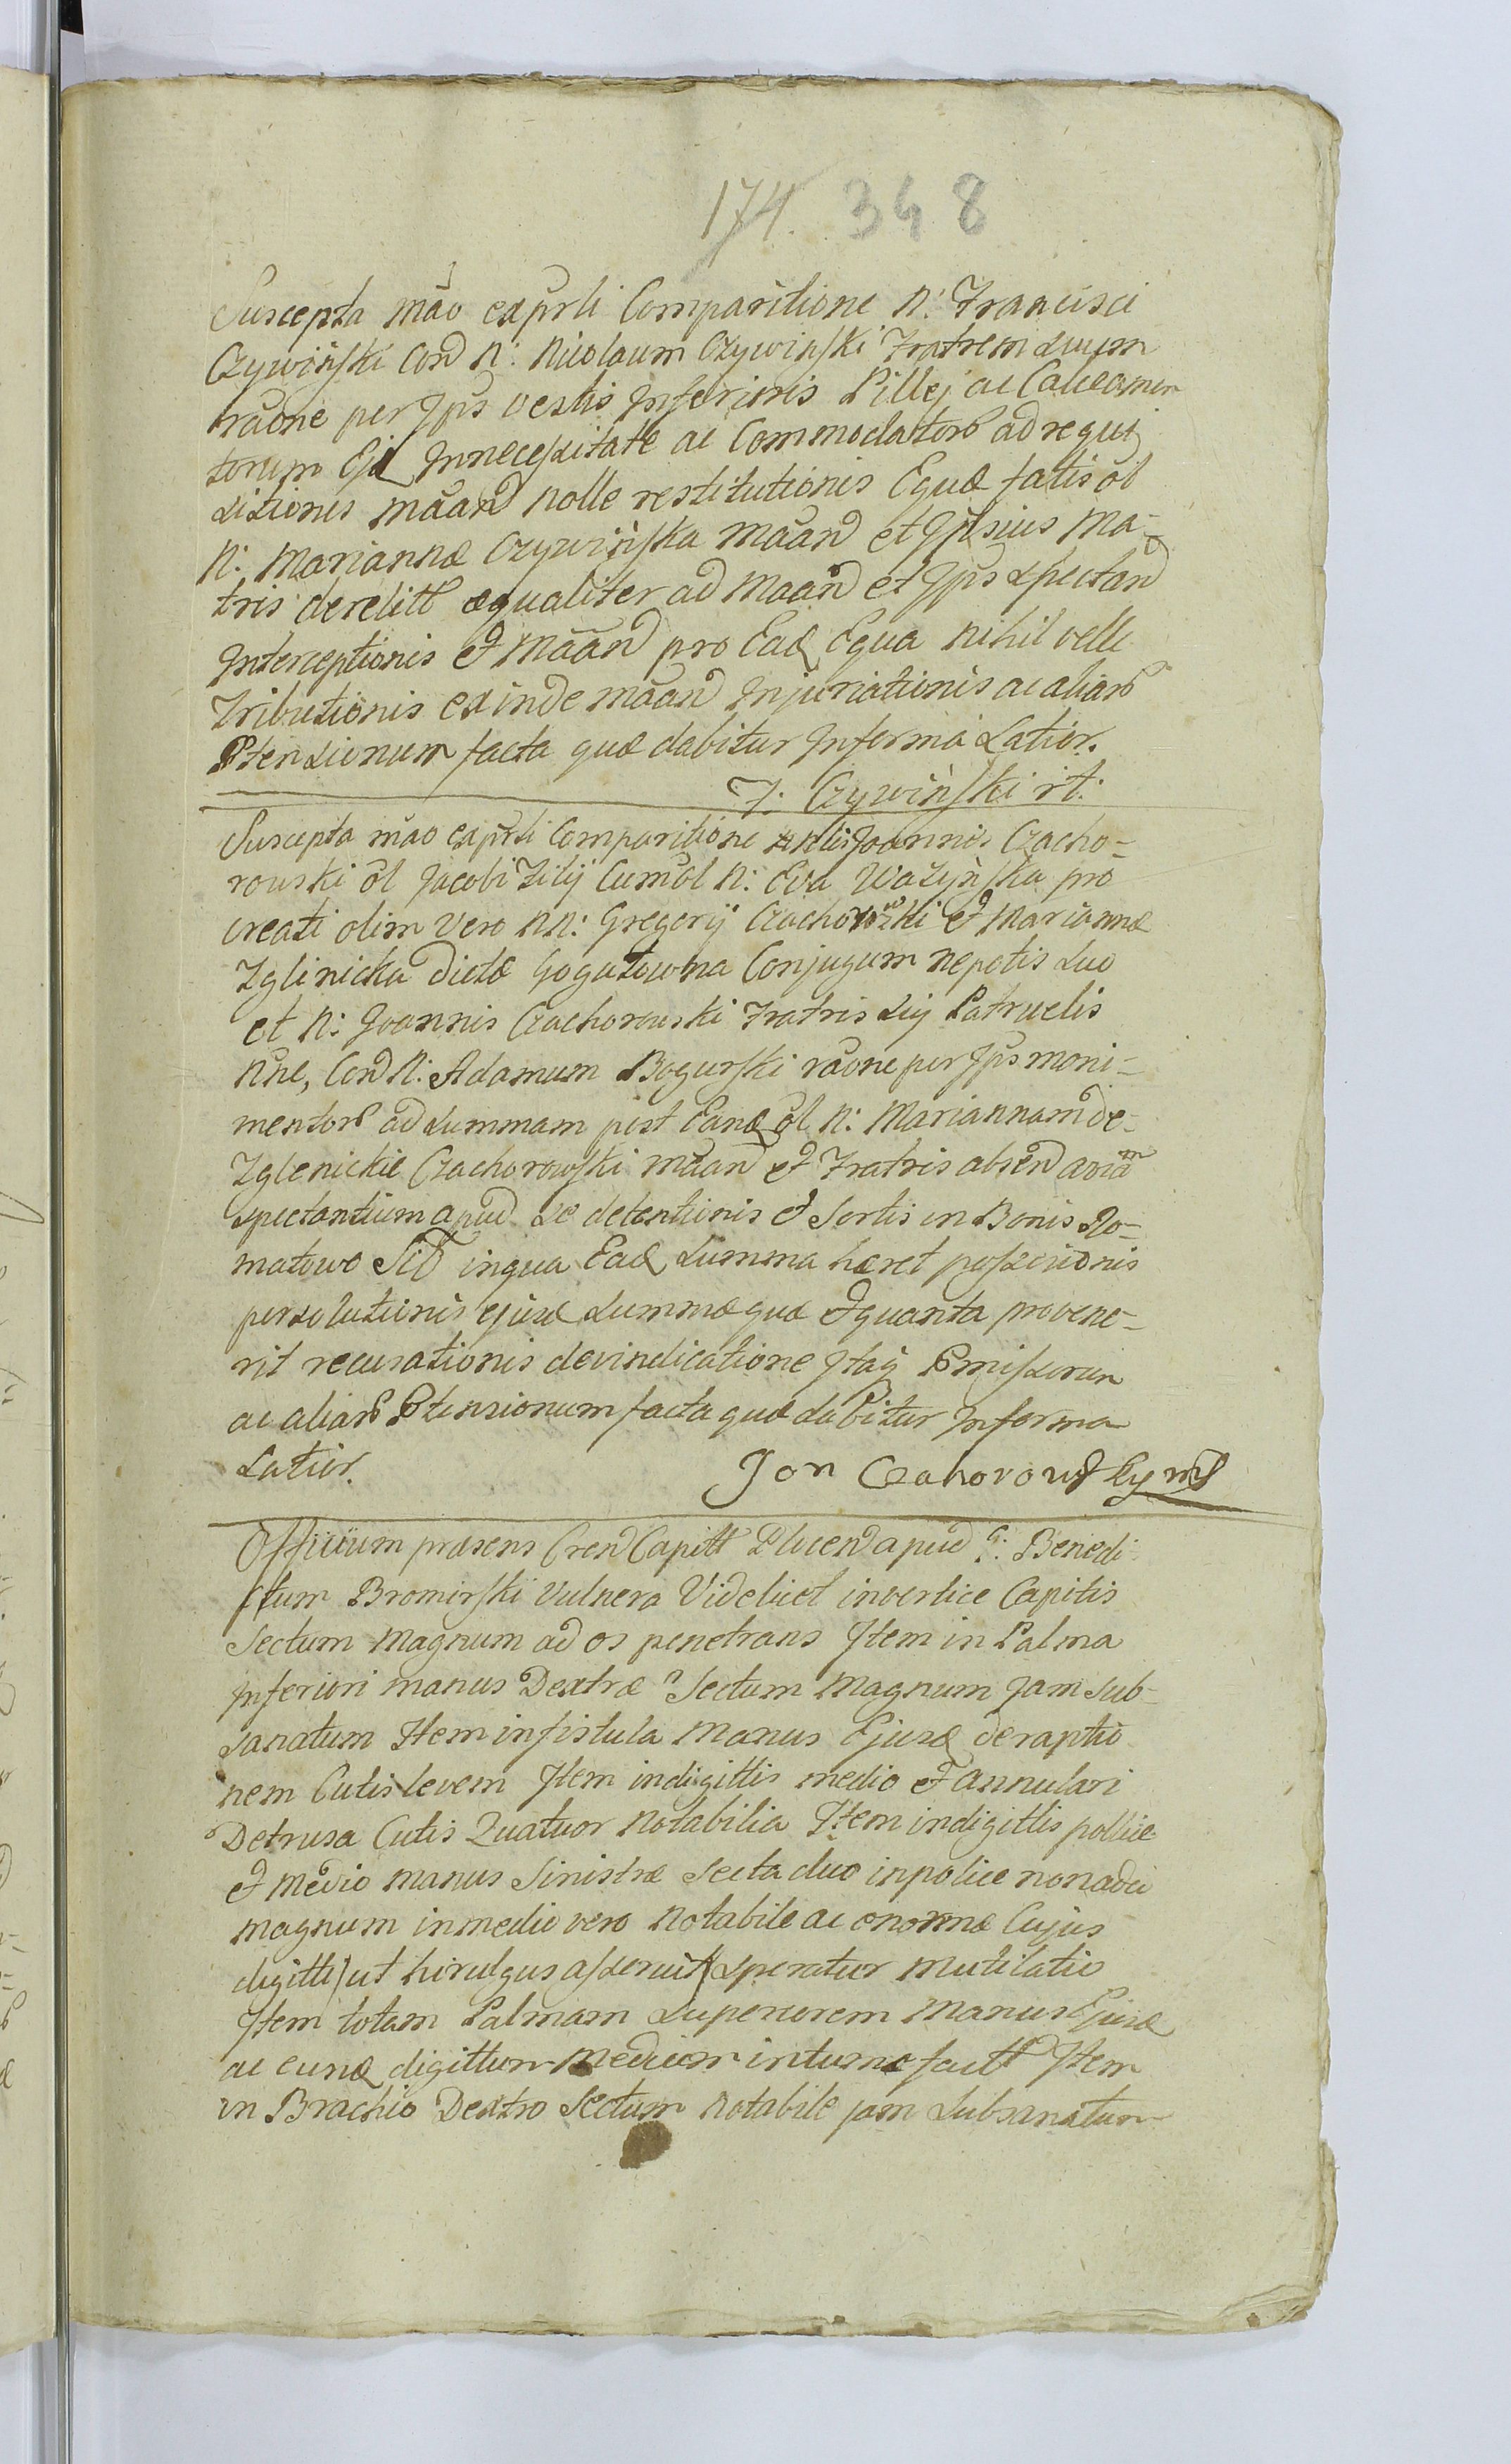 174. 348
Suscepta mão exprli Comparitione N: Francisci
Czywiński Con̄d N: Nicolaum Czywiński Fratrem Suum
raõne per Ips̃ vestis Inferioris Pillej ac Calceamen
torum Eid Innecessitate ac Commodator̃ ad requi
sitionis mãand nolle restitutionis Equæ fatis ol̃
N: Mariannæ Czywińska mãand et Ipsius Ma-
tris derelitt æqualiter ad Mãand et Ips̃ spectand
Interceptionis et Mãand pro Ead Equa nihil velle
Tributionis exinde mãand Injuriationis ac aliar̃
Ptensionum facta quæ dabitur Informa Latior.
F: Czywiński rt:
Suscepta mão exprli Comparitione Nlis Joannis Czacho-
rowski ol̃ Jacobi Filij cum ol̃ N: Eva Ważyńska pro
creati olim vero NN: Gregorij Czachorowski et Mariannæ
Zglinicka dictæ Gogutowna Conjugum nepotis suo
et N: Joannis Czachorowski Fratris sui Patruelis
Nne, Cond N: Adamum Bogurski raõne per Ips̃ moni-
mentor̃ ad summam post Eand ol̃ N: Mariannam de-
Zglenickie Czachorowski mãand et Fratris absend aõia
spectantium apud se detentionis et Sortis in Bonis Ro-
matowo Sit̃ in qua Ead summa hæret possessionis
persolutionis ejusd summæ quæ et quanta provene-
rit recusationis devindicatione Itaq Pmissorum
ac aliar̃ Ptensionum facta quæ dabitur Informa
Latior.
Jan Czahorowsky mp
Officium præsens Crend Capitt Plucend apud G: Benedi-
ctum Bromirski vulnera Videlicet in vertice Capitis
Sectum Magnum ad os penetrans Item in Palma
Inferiori manus Dextræ Sectum Magnum Jam Sub-
sanatum Item in fistula Manus Ejusd deraptio
nem Cutis levem Item in digittis medio et Annulari
Detrusa Cutis Quatuor Notabilia Item in digittis pollice
et medio manus Sinistræ Secta duo in police non adeo
magnum in medio vero Notabile ac enorme Cujus
digitti / ut hirulgus asseruit / speratur Mutilatio
Item totam Palmam Superiorem Manus Ejusd
ac eund digittum Medium intumefactt Item
in Brachio Dextro Sectum Notabile jam Subsanatum